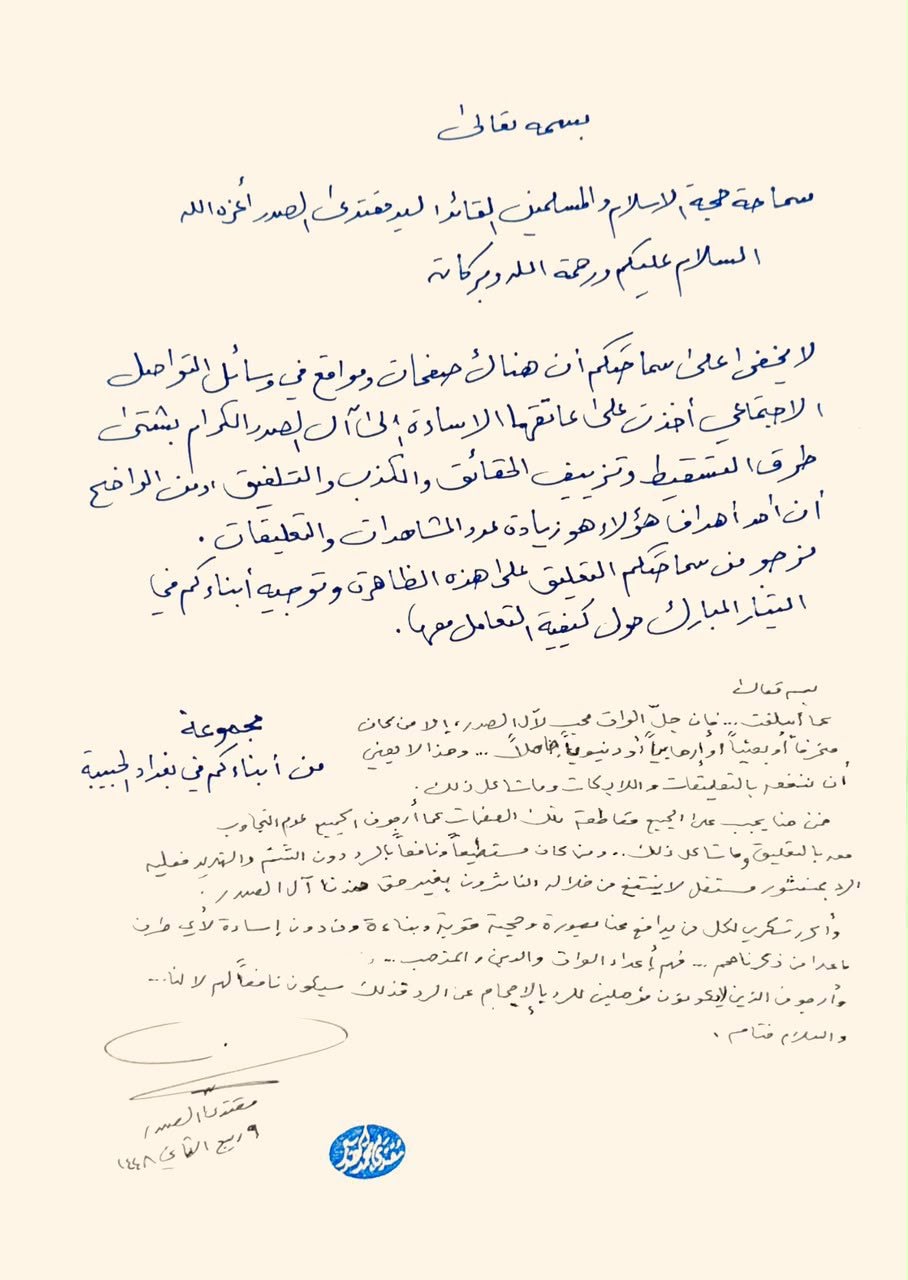 بسمه تعالى
سماحة حجة الاسلام والمسلمين القائد السيد مقتدى الصدر أعزه الله
السلام عليكم ورحمة الله وبركاته
لا يخفى على سماحتكم أن هناك صفحات ومواقع في وسائل التواصل
الاجتماعي أخذت على عاتقها الاساءة إلى آل الصدر الكرام بشتى
طرق التسقيط وتزييف الحقائق والكذب والتلفيق، ومن الواضح
أن أحد أهداف هؤلاء هو زيادة عدد المشاهدات والتعليقات.
نرجو من سماحتكم التعليق على هذه الظاهرة وتوجيه أبناءكم في
التيار المبارك حول كيفية التعامل معها.
مجموعة
من أبناءكم في بغداد الحبيبة
بسمه تعالى
كما أسلفت... فإن جلّ العراق محب لآل الصدر، إلا من كان
منحرفاً أو بعثياً أو إرهابياً أو دنيوياً جاهلاً... وهذا لا يعني
أن ننفعه بالتعليقات واللايكات وما شاكل ذلك.
فمن هنا يجب على الجميع مقاطعة تلك الصفحات كما أرجو من الجميع عدم التجاوب
معه بالتعليق وما شاكل ذلك.. ومن كان مستطيعاً ونافعاً بالرد دون الشتم والتهديد فعليه
الرد بمنشور مستقل لا ينتفع من خلاله الناشرون بغير حق ضدنا آل الصدر.
وأكرر شكري لكل من يدافع عنا بصورة وحجة قوية وبناءة ومن دون إساءة لأي طرف
ما عدا من ذكرناهم... فهم أعداء العراق والدين والمذهب...
وأرجو من الذين لا يكونون مؤهلين للرد بالإحجام عن الرد فذلك سيكون نافعاً لهم لا لنا...
والسلام ختام.
مقتدى الصدر
٩ ربيع الثاني ١٤٤٨